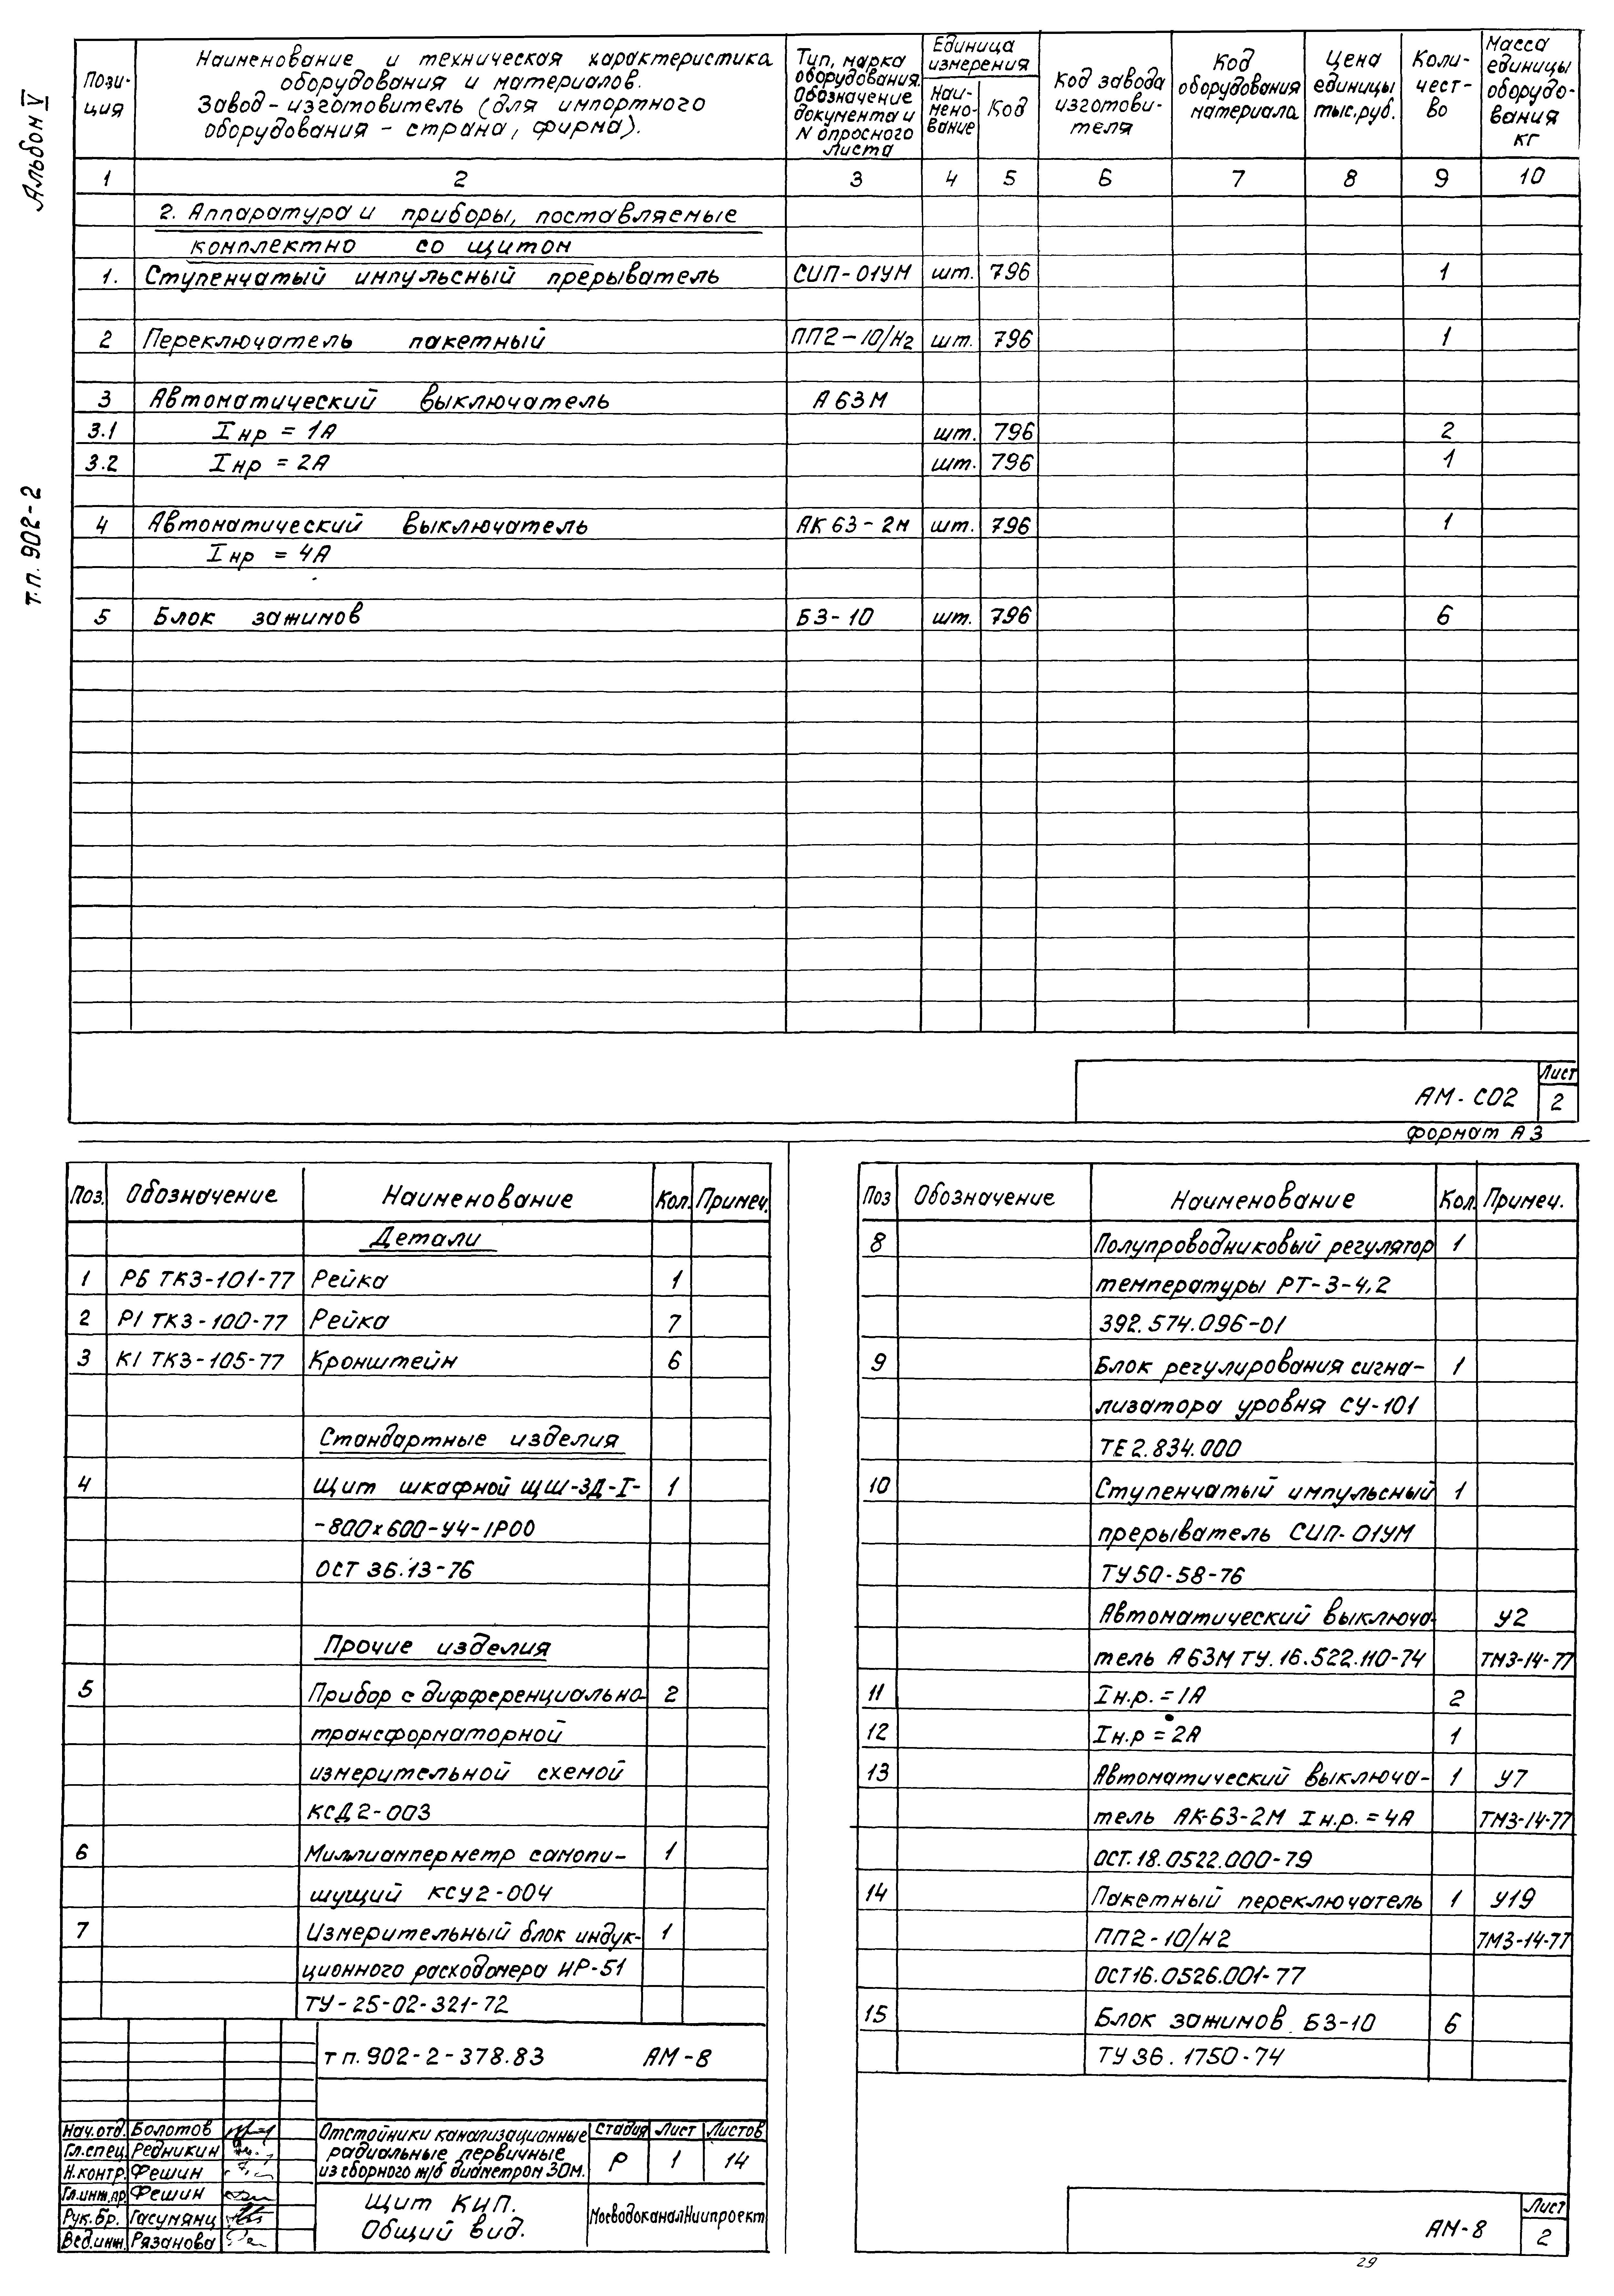 Альбом V
т.п. 902-2
Пози-
ция
Наименование и техническая характеристика
оборудования и материалов.
Завод-изготовитель (для импортного
оборудования - страна, фирма).
Тип, марка
оборудования.
Обозначение
документа и
N опросного
листа
Единица
измерения
Наи-
мено-
вание
Код
Код завода
изготови-
теля
Код
оборудования
материала
Цена
единицы
тыс.руб.
Коли-
чест-
во
Масса
единицы
оборудо-
вания
кг
1 2 3 4 5 6 7 8 9 10
2. Аппаратура и приборы, поставляемые
комплектно со щитом
1. Ступенчатый импульсный прерыватель СИП-01УМ шт. 796 1
2 Переключатель пакетный ПП2-10/Н2 шт. 796 1
3 Автоматический выключатель А63М
3.1 Iнр = 1А шт. 796 2
3.2 Iнр = 2А шт. 796 1
4 Автоматический выключатель АК63-2М шт. 796 1
Iнр = 4А
5 Блок зажимов БЗ-10 шт. 796 6
АМ-СО2
Лист
2
формат А3
Поз. Обозначение Наименование Кол. Примеч.
Детали
1 РБ ТКЗ-101-77 Рейка 1
2 Р1 ТКЗ-100-77 Рейка 7
3 К1 ТКЗ-105-77 Кронштейн 6
Стандартные изделия
4 Щит шкафной ЩШ-ЗД-I- 1
-800х600-У4-IР00
ОСТ 36.13-76
Прочие изделия
5 Прибор с дифференциально- 2
трансформаторной
измерительной схемой
КСД2-003
6 Миллиамперметр самопи- 1
шущий КСУ2-004
7 Измерительный блок индук- 1
ционного расходомера ИР-51
ТУ-25-02-321-72
т п. 902-2-378.83 АМ-8
Нач.отд. Болотов
Гл.спец. Редникин
Н.контр. Фешин
Гл.инж.пр. Фешин
Рук.бр. Гасумянц
Вед.инж. Рязанова
Отстойники канализационные
радиальные первичные
из сборного ж/б диаметром 30м.
Стадия Лист Листов
Р 1 14
Щит КИП.
Общий вид.
МосводоканалНиипроект
Поз Обозначение Наименование Кол. Примеч.
8 Полупроводниковый регулятор 1
температуры РТ-3-4,2
392.574.096-01
9 Блок регулирования сигна- 1
лизатора уровня СУ-101
ТЕ2.834.000
10 Ступенчатый импульсный 1
прерыватель СИП-01УМ
ТУ50-58-76
Автоматический выключа- У2
тель А63М ТУ.16.522.110-74 ТМЗ-14-77
11 Iн.р. = 1А 2
12 Iн.р = 2А 1
13 Автоматический выключа- 1 У7
тель АК-63-2М Iн.р. = 4А ТМЗ-14-77
ОСТ.18.0522.000-79
14 Пакетный переключатель 1 У19
ПП2-10/Н2 ТМЗ-14-77
ОСТ16.0526.001-77
15 Блок зажимов БЗ-10 6
ТУ36.1750-74
АМ-8
Лист
2
29